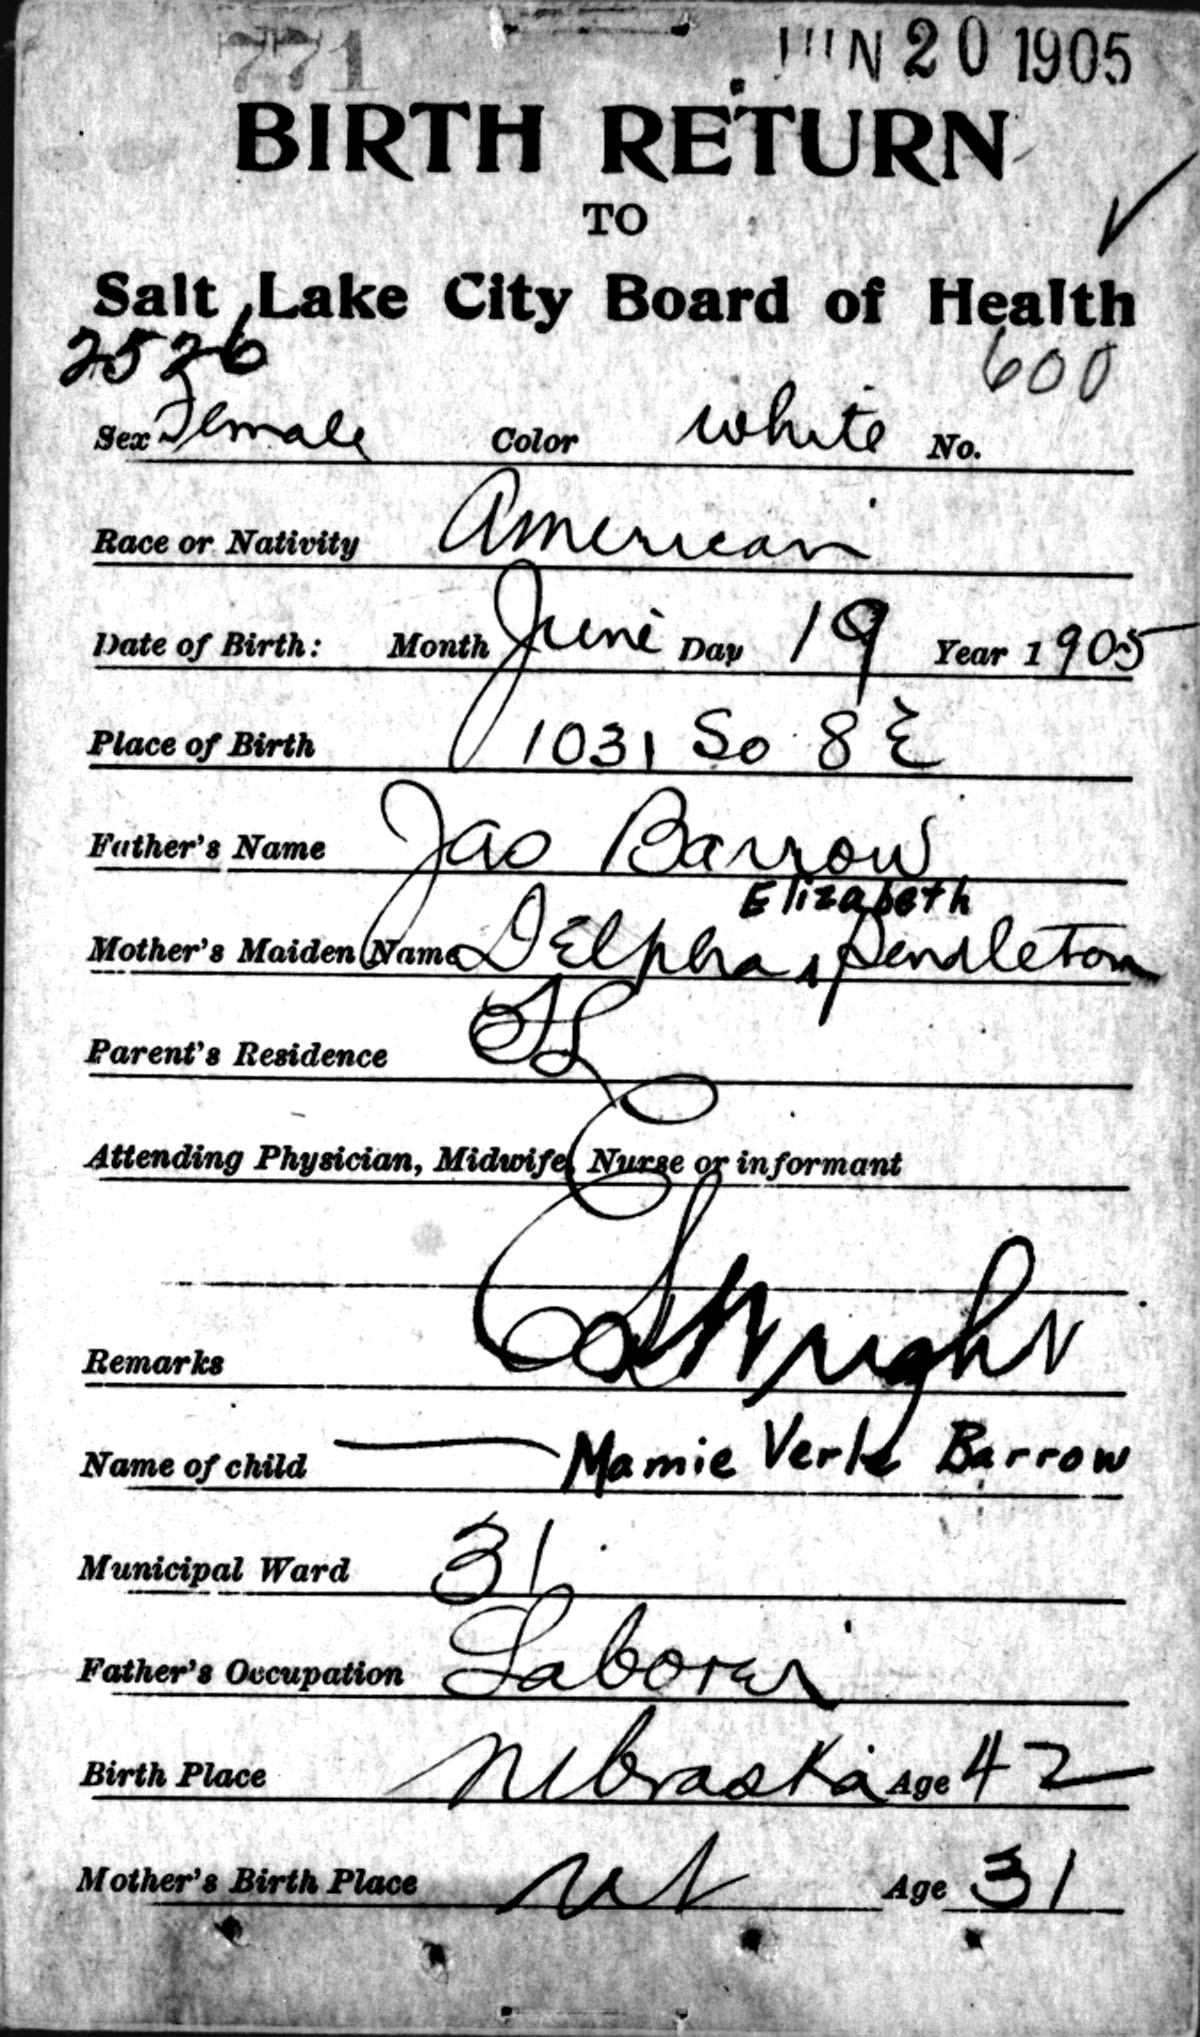 771 JUN 20 1905
BIRTH RETURN
TO
Salt Lake City Board of Health
2526 600
Sex Female Color white No.
Race or Nativity American
Date of Birth: Month June Day 19 Year 1905
Place of Birth 1031 So 8 E
Father's Name Jas Barrow
Elizabeth
Mother's Maiden Name Delpha Pendleton
Parent's Residence SL
Attending Physician, Midwife, Nurse or informant
Wright
Remarks
Name of child Mamie Verle Barrow
Municipal Ward 31
Father's Occupation Laborer
Birth Place Nebraska Age 42
Mother's Birth Place Ut Age 31